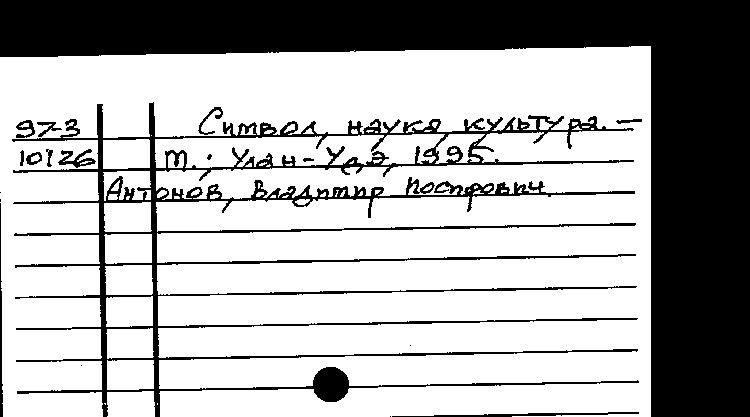 97-3 Символ, наука, культура. —
10126 М.; Улан-Удэ, 1995.
Антонов, Владимир Иосифович